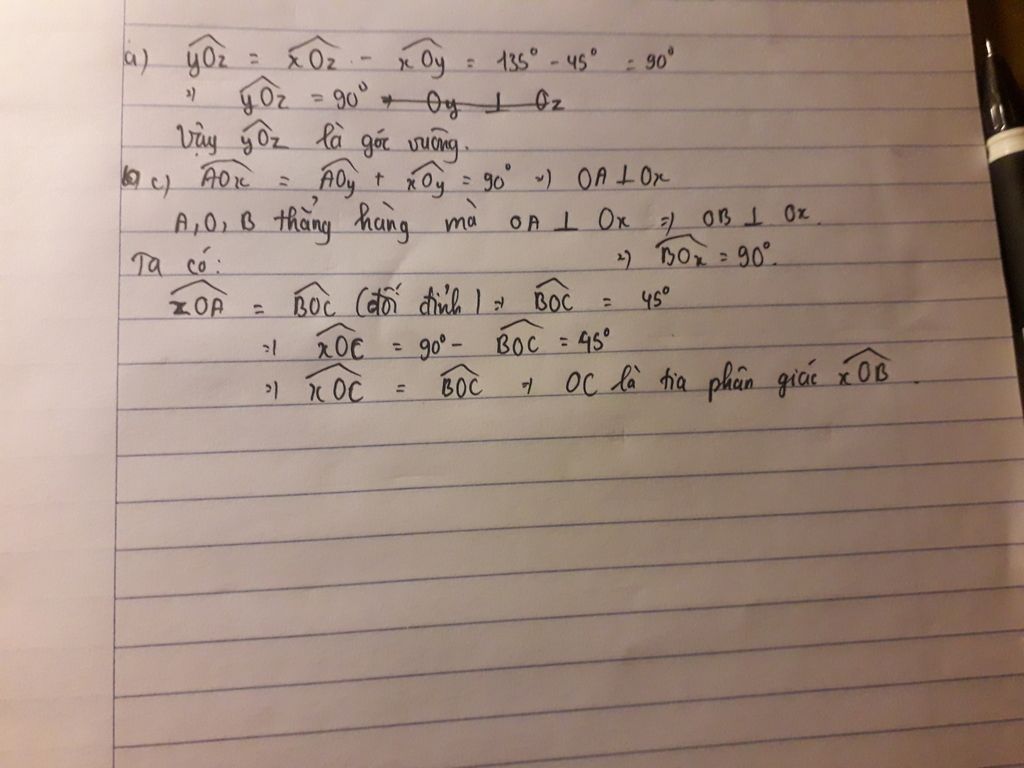 a) yOz = xOz - xOy = 135° - 45° = 90°
=) yOz = 90° Oy ⊥ Oz
Vậy yOz là góc vuông.
c) AOx = AOy + xOy = 90° =) OA ⊥ Ox
A, O, B thẳng hàng mà OA ⊥ Ox =) OB ⊥ Ox.
=) BOx = 90°.
Ta có:
xOA = BOC (đối đỉnh) => BOC = 45°
=) xOC = 90° - BOC = 45°
=) xOC = BOC =) OC là tia phân giác xOB.